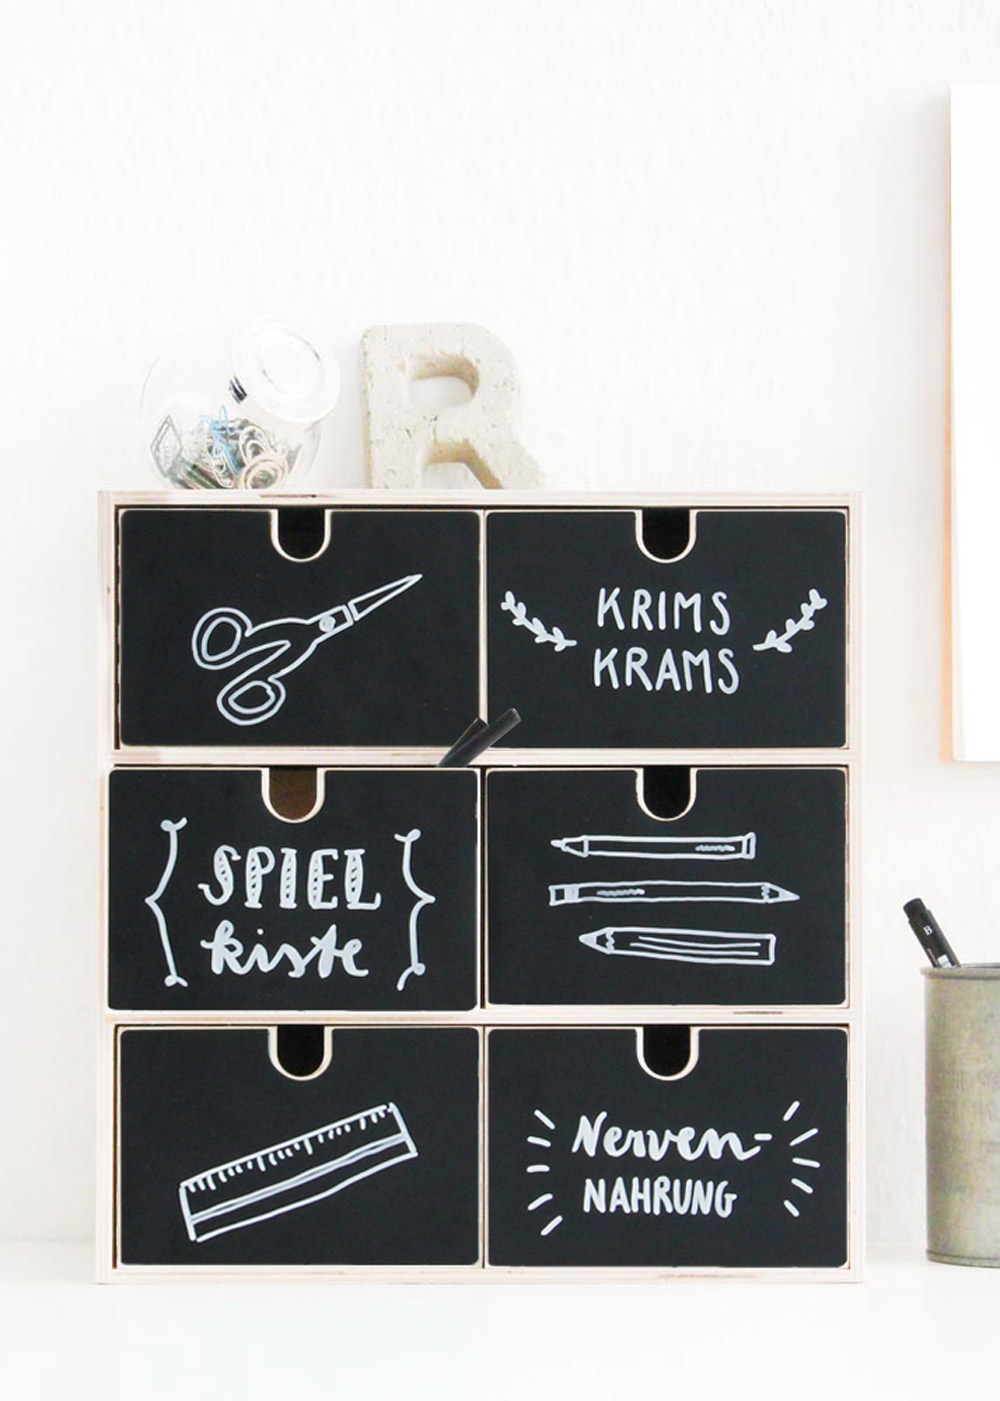 R
KRIMS
KRAMS
SPIEL
kiste
B
Nerven-
NAHRUNG